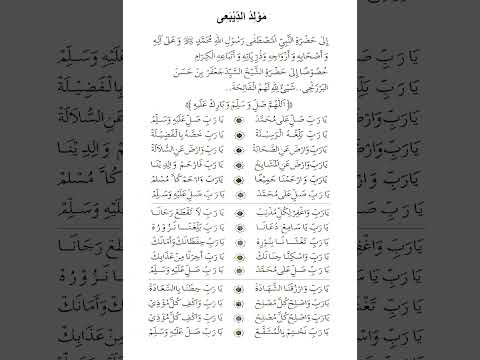 مَوْلِدُ الدِّيْبَعِى
إِلىَ حَضْرَةِ النَّبِيِّ الْمُصْطَفَى رَسُوْلِ اللهِ مُحَمَّدٍ ﷺ وَ عَلىَ آلِهِ
وَ أَصْحَابِهِ وَ أَزْوَاجِهِ وَ ذُرِّيَّاتِهِ وَ أَتْبَاعِهِ الْكِرَامِ
خُصُوْصًا إِلىَ حَضْرَةِ الشَّيْخِ السَّيِّدِ جَعْفَرَ بِنْ حَسَنْ
الْبَرْزَنْجِى.. شَيْئٌ لِلهِ لَهُمُ الْفَاتِحَة..
﴿ اَللّٰهُمَّ صَلِّ وَ سَلِّمْ وَ بَارِكْ عَلَيْهِ ﴾
يَا رَبِّ صَلِّ عَلىَ مُحَمَّدْ يَا رَبِّ صَلِّ عَلَيْهِ وَسَلِّمْ
يَا رَبِّ بَلِّغْهُ الْوَسِيْلَةْ يَا رَبِّ خُصَّهُ بِالْفَضِيْلَةْ
يَارَبِّ وَارْضَ عَنِ الصَّحَابَةْ يَارَبِّ وَارْضَ عَنِ السُّلاَلَةْ
يَارَبِّ وَارْضَ عَنِ الْمَشَايِخْ يَارَبِّ فَارْحَمْ وَالِدِيْنَا
يَارَبِّ وَارْحَمْنَا جَمِيْعًا يَارَبِّ وَارْحَمْ كُلَّ مُسْلِمْ
يَا رَبِّ صَلِّ عَلىَ مُحَمَّدْ يَا رَبِّ صَلِّ عَلَيْهِ وَسَلِّمْ
يَارَبِّ وَاغْفِرْ لِكُلِّ مُذْنِبْ يَارَبِّ لاَ تَقْطَعْ رَجَانَا
يَارَبِّ يَا سَامِعْ دُعَانَا يَارَبِّ بَلِّغْنَا نَزُوْرُهْ
يَارَبِّ تَغْشَانَا بِنُوْرِهْ يَارَبِّ حِفْظَانَكْ وَأَمَانَكْ
يَارَبِّ وَاسْكِنَّا جِنَانَكْ يَارَبِّ أَجِرْنَا مِنْ عَذَابِكْ
يَا رَبِّ صَلِّ عَلىَ مُحَمَّدْ يَا رَبِّ صَلِّ عَلَيْهِ وَسَلِّمْ
يَارَبِّ وَارْزُقْنَا الشَّهَادَةْ يَارَبِّ حِطْنَا بِالسَّعَادَةْ
يَارَبِّ وَاصْلِحْ كُلَّ مُصْلِحْ يَارَبِّ وَاكْفِ كُلَّ مُؤْذِيْ
يَارَبِّ وَاصْلِحْ كُلَّ مُصْلِحْ يَارَبِّ وَاكْفِ كُلَّ مُؤْذِيْ
يَا رَبِّ نَخْتِمْ بِالْمُشَفَّعْ يَا رَبِّ صَلِّ عَلَيْهِ وَسَلِّمْ